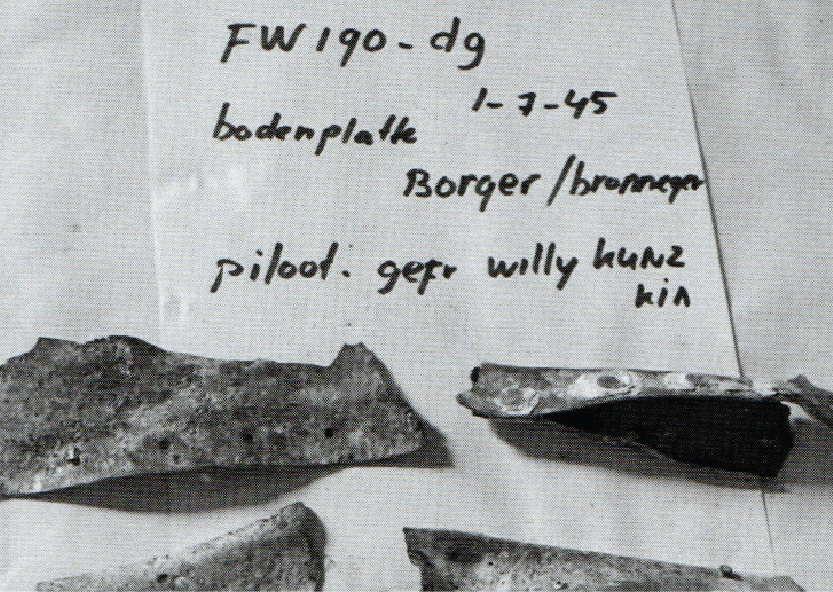 FW 190 - dg
1-7-45
bodenplatte
Borger / bronneger
piloot. gefr willy KUNZ
kiA